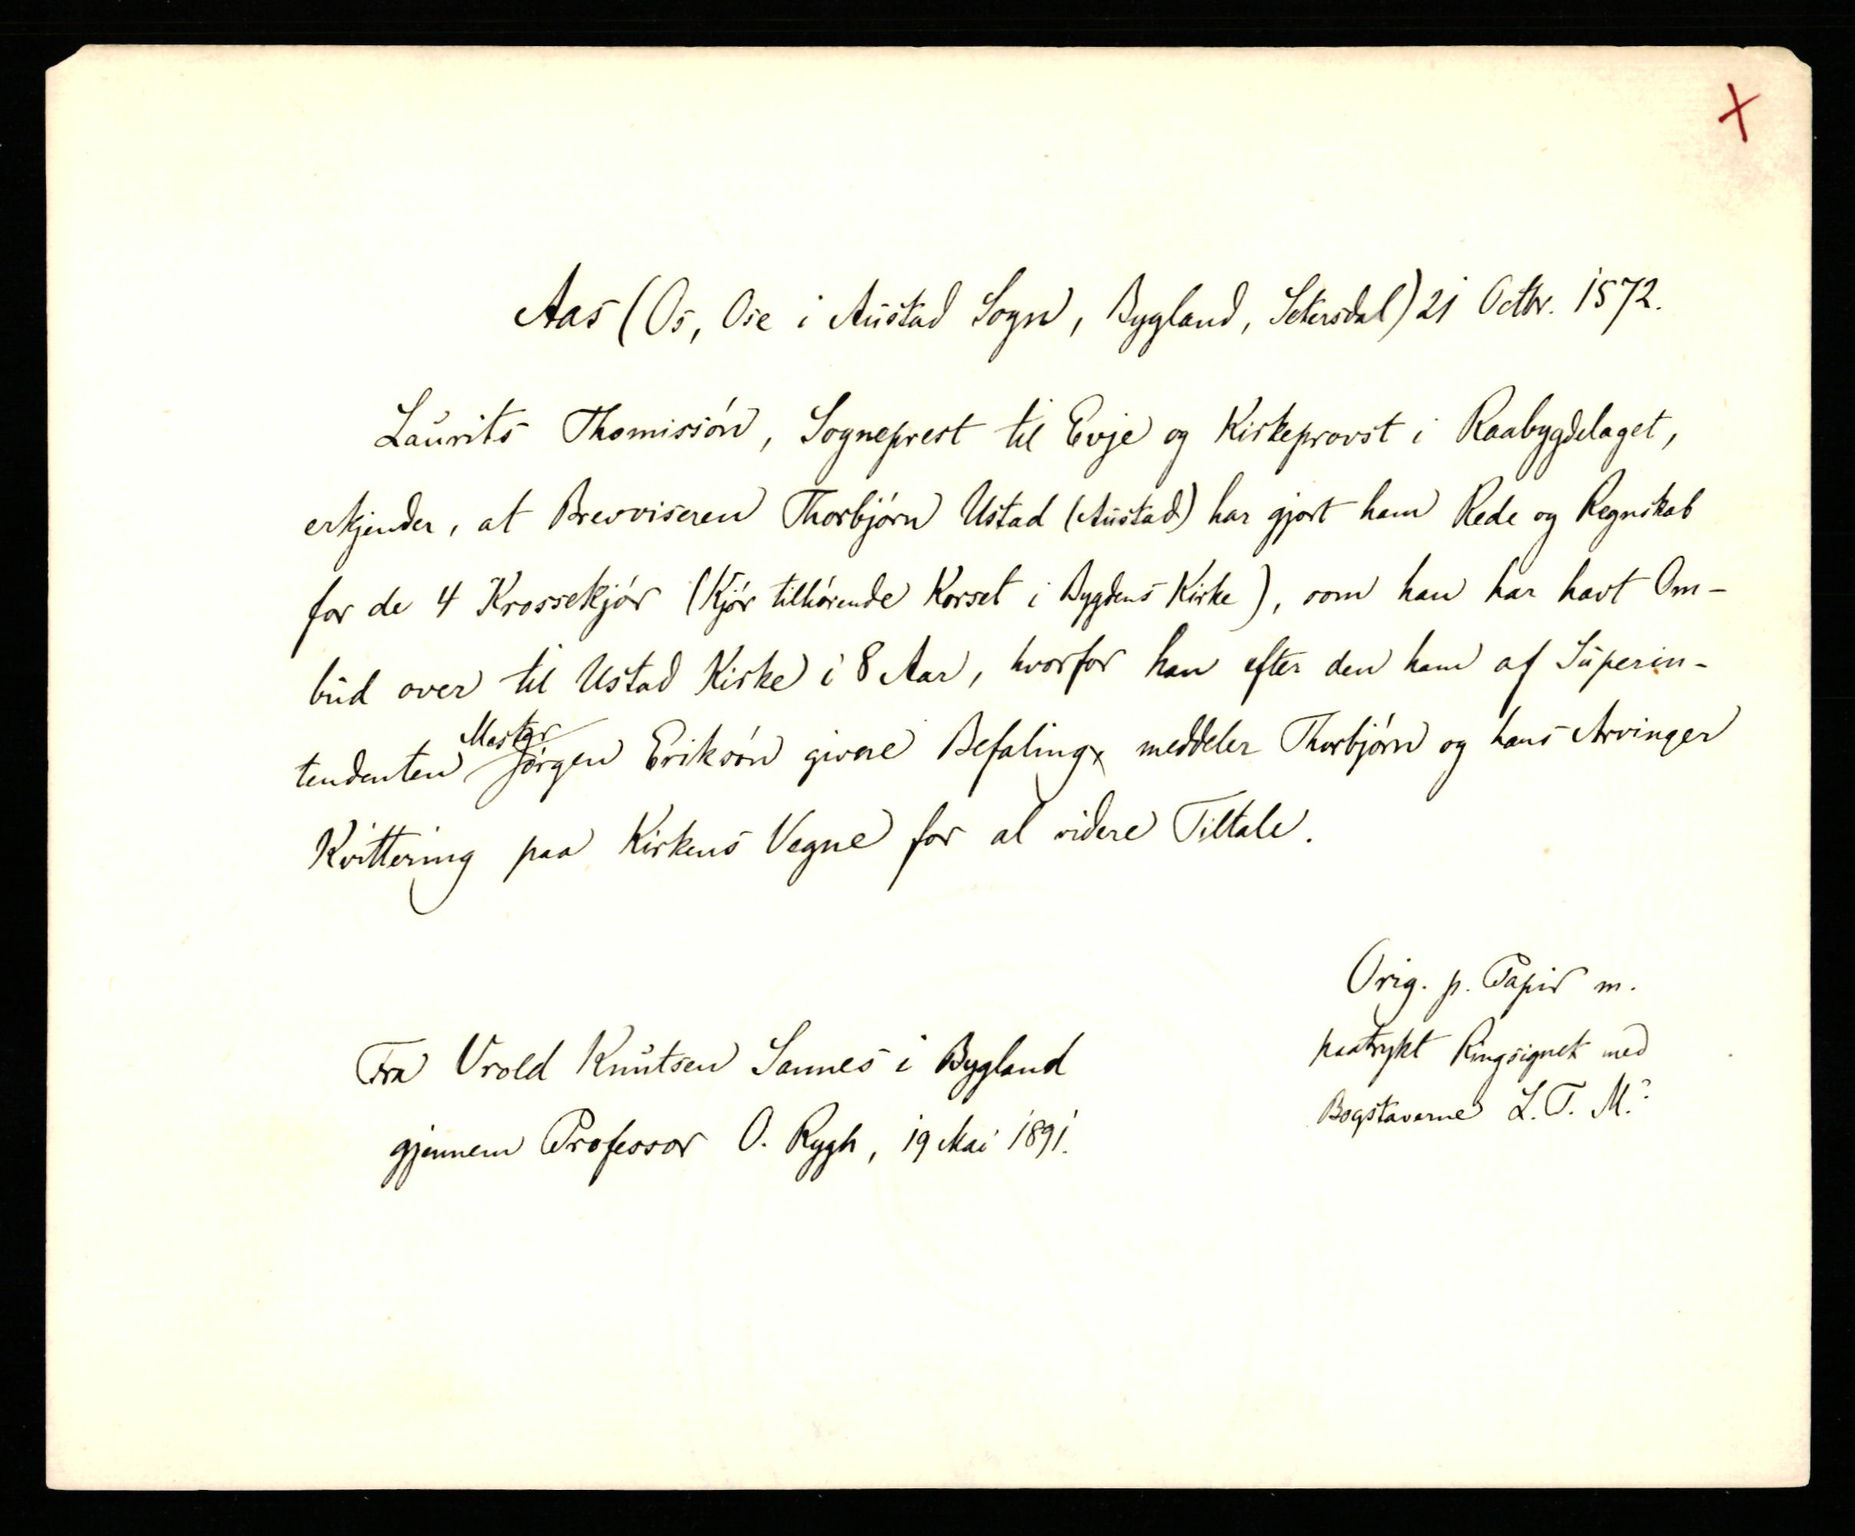 Aas (Os, Ose i Austad Sogn, Bygland, Setersdal) 21 Octbr. 1572.
Laurits Thomissón, Sogneprest til Evje og Kirkeprovst i Raabygdelaget,
erkjender, at Brevviseren Thorbjórn Ustad (Austad) har gjort ham Rede og Regnskab
for de 4 Krossekjór (Kjór tilhórende Korset i Bygdens Kirke), som han har havt Om-
bud over til Ustad Kirke i 8 Aar, hvorfor han efter den ham af Superin-
tendenten Mester Jórgen Eriksón givne Befaling, meddeler Thorbjórn og hans Arvinger
Kvittering paa Kirkens Vegne for al videre Tiltale.
Orig. p. Papir m.
paatrykt Ringsignet med
Bogstaverne L. T. M.?
Fra Vrold Knutsen Sannes i Bygland
gjennem Professor O. Rygh, 19 Mai 1891.